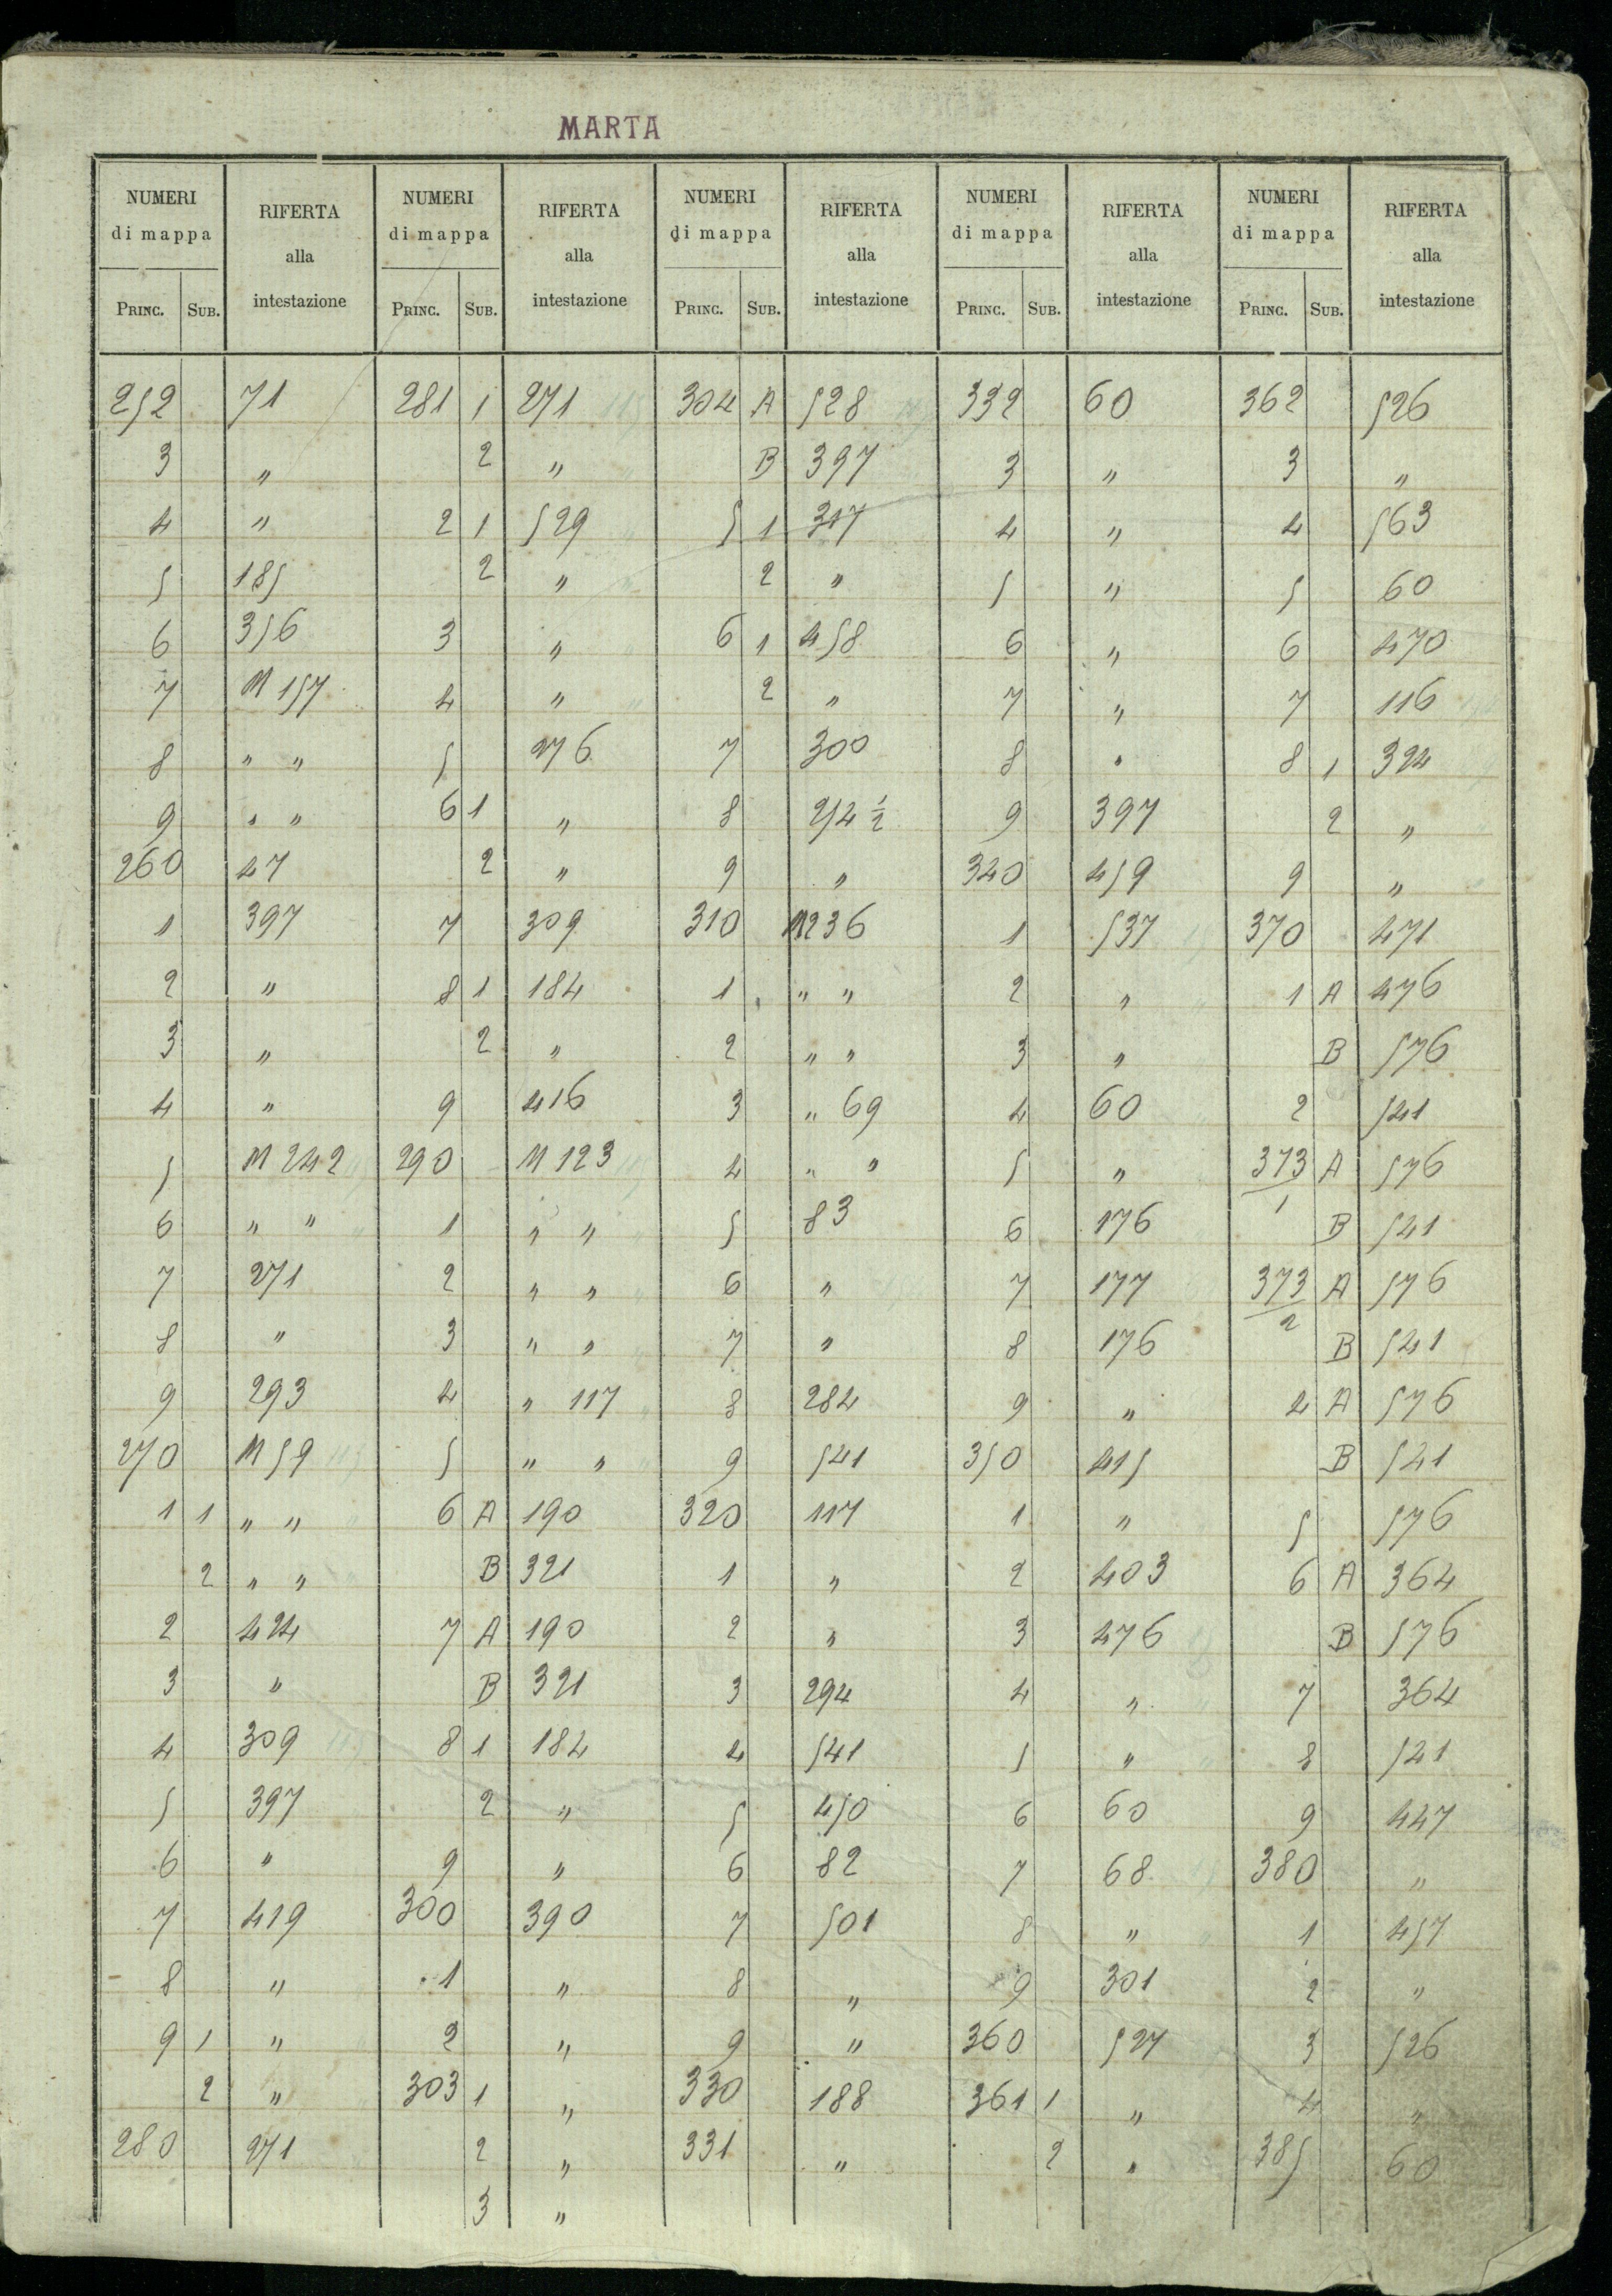 MARTA
NUMERI di mappa RIFERTA alla intestazione NUMERI di mappa RIFERTA alla intestazione NUMERI di mappa RIFERTA alla intestazione NUMERI di mappa RIFERTA alla intestazione NUMERI di mappa RIFERTA alla intestazione
PRINC. SUB. PRINC. SUB. PRINC. SUB. PRINC. SUB. PRINC. SUB.
252 71 281 1 271 304 A 528 332 60 362 526
3 " 2 " B 397 3 " 3 "
4 " 2 1 529 5 1 317 4 " 4 563
5 185 2 " 2 " 5 " 5 60
6 356 3 " 6 1 458 6 " 6 470
7 M 157 4 " 2 " 7 " 7 116
8 " " 5 276 7 300 8 " 8 1 324
9 " " 6 1 " 8 254 ½ 9 397 2 "
260 47 2 " 9 " 340 459 9 "
1 397 7 309 310 M236 1 537 370 471
2 " 8 1 184 1 " " 2 " 1 A 476
3 " 2 " 2 " " 3 " B 576
4 " 9 416 3 " 69 4 60 2 541
5 M 242 290 M 123 4 " " 5 " 373/1 A 576
6 " " 1 " " 5 83 6 176 B 541
7 271 2 " " 6 " 7 177 373/2 A 576
8 " 3 " " 7 " 8 176 B 541
9 293 4 " 117 8 284 9 " 4 A 576
270 M 59 5 " " 9 541 350 415 B 541
1 1 " " 6 A 190 320 117 1 " 5 576
2 " " B 321 1 " 2 403 6 A 364
2 424 7 A 190 2 " 3 476 B 576
3 " B 321 3 294 4 " 7 364
4 309 8 1 184 4 541 5 " 8 541
5 397 2 " 5 450 6 60 9 447
6 " 9 " 6 82 7 68 380 "
7 419 300 390 7 501 8 " 1 457
8 " 1 " 8 " 9 301 2 "
9 1 " 2 " 9 " 360 527 3 526
2 " 303 1 " 330 188 361 1 " 4 "
280 271 2 " 331 " 2 " 385 60
3 "